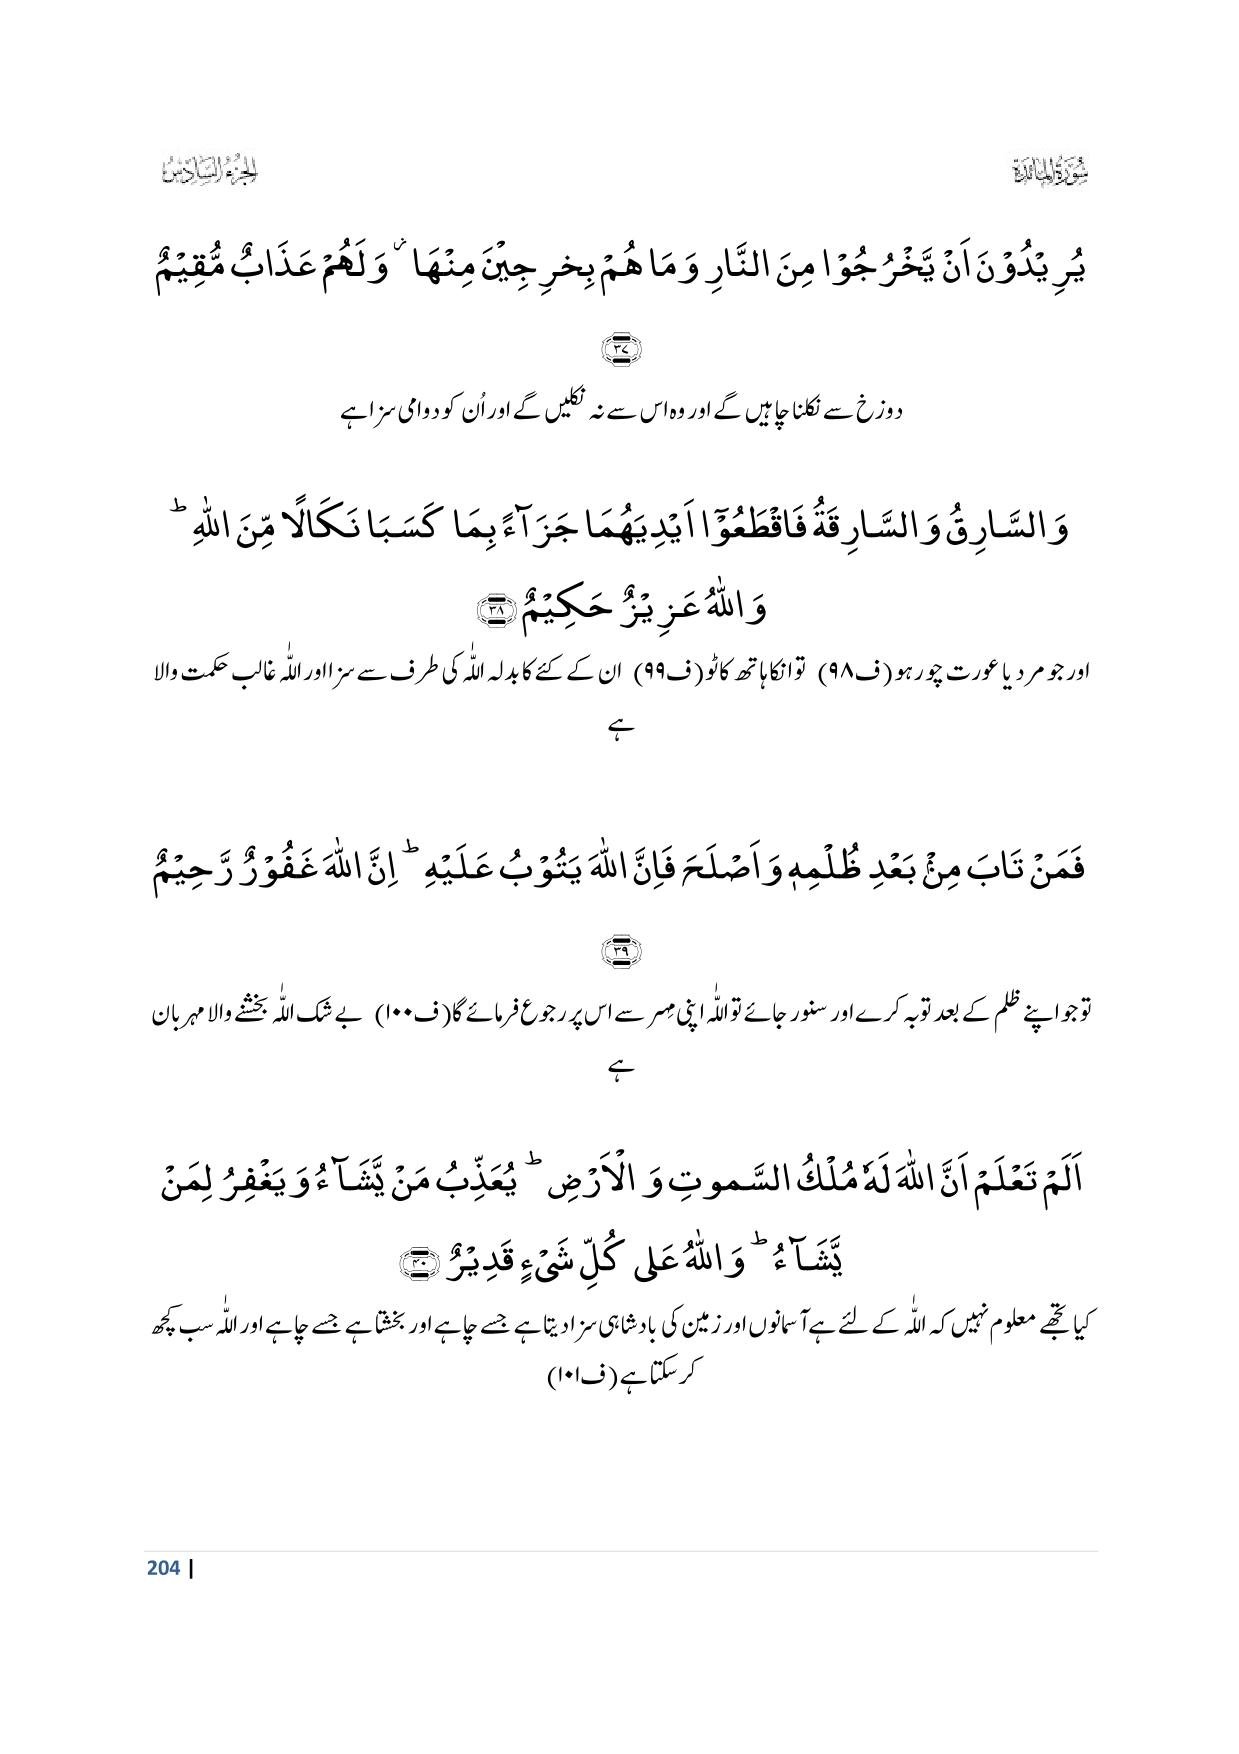 سُوْرَةُ الْمَائِدَة
الجزء السادس
يُرِيْدُوْنَ اَنْ يَّخْرُجُوْا مِنَ النَّارِ وَ مَا هُمْ بِخٰرِجِيْنَ مِنْهَا ۫ وَ لَهُمْ عَذَابٌ مُّقِيْمٌ
﴿۳۷﴾
دوزخ سے نکلنا چاہیں گے اور وہ اس سے نہ نکلیں گے اور اُن کو دوامی سزا ہے
وَ السَّارِقُ وَ السَّارِقَةُ فَاقْطَعُوْۤا اَيْدِيَهُمَا جَزَآءًۢ بِمَا كَسَبَا نَكَالًا مِّنَ اللّٰهِ ؕ
وَ اللّٰهُ عَزِيْزٌ حَكِيْمٌ ﴿۳۸﴾
اور جو مرد یا عورت چور ہو (ف۹۸) تو انکا ہاتھ کاٹو (ف۹۹) ان کے کئے کا بدلہ اللّٰہ کی طرف سے سزا اور اللّٰہ غالب حکمت والا
ہے
فَمَنْ تَابَ مِنْۢ بَعْدِ ظُلْمِهٖ وَ اَصْلَحَ فَاِنَّ اللّٰهَ يَتُوْبُ عَلَيْهِ ؕ اِنَّ اللّٰهَ غَفُوْرٌ رَّحِيْمٌ
﴿۳۹﴾
تو جو اپنے ظلم کے بعد توبہ کرے اور سنور جائے تو اللّٰہ اپنی مِہر سے اس پر رجوع فرمائے گا (ف۱۰۰) بے شک اللّٰہ بخشنے والا مہربان
ہے
اَلَمْ تَعْلَمْ اَنَّ اللّٰهَ لَهٗ مُلْكُ السَّمٰوٰتِ وَ الْاَرْضِ ؕ يُعَذِّبُ مَنْ يَّشَآءُ وَ يَغْفِرُ لِمَنْ
يَّشَآءُ ؕ وَ اللّٰهُ عَلٰى كُلِّ شَیْءٍ قَدِيْرٌ ﴿۴۰﴾
کیا تجھے معلوم نہیں کہ اللّٰہ کے لئے ہے آسمانوں اور زمین کی بادشاہی سزا دیتا ہے جسے چاہے اور بخشتا ہے جسے چاہے اور اللّٰہ سب کچھ
کر سکتا ہے (ف۱۰۱)
204 |